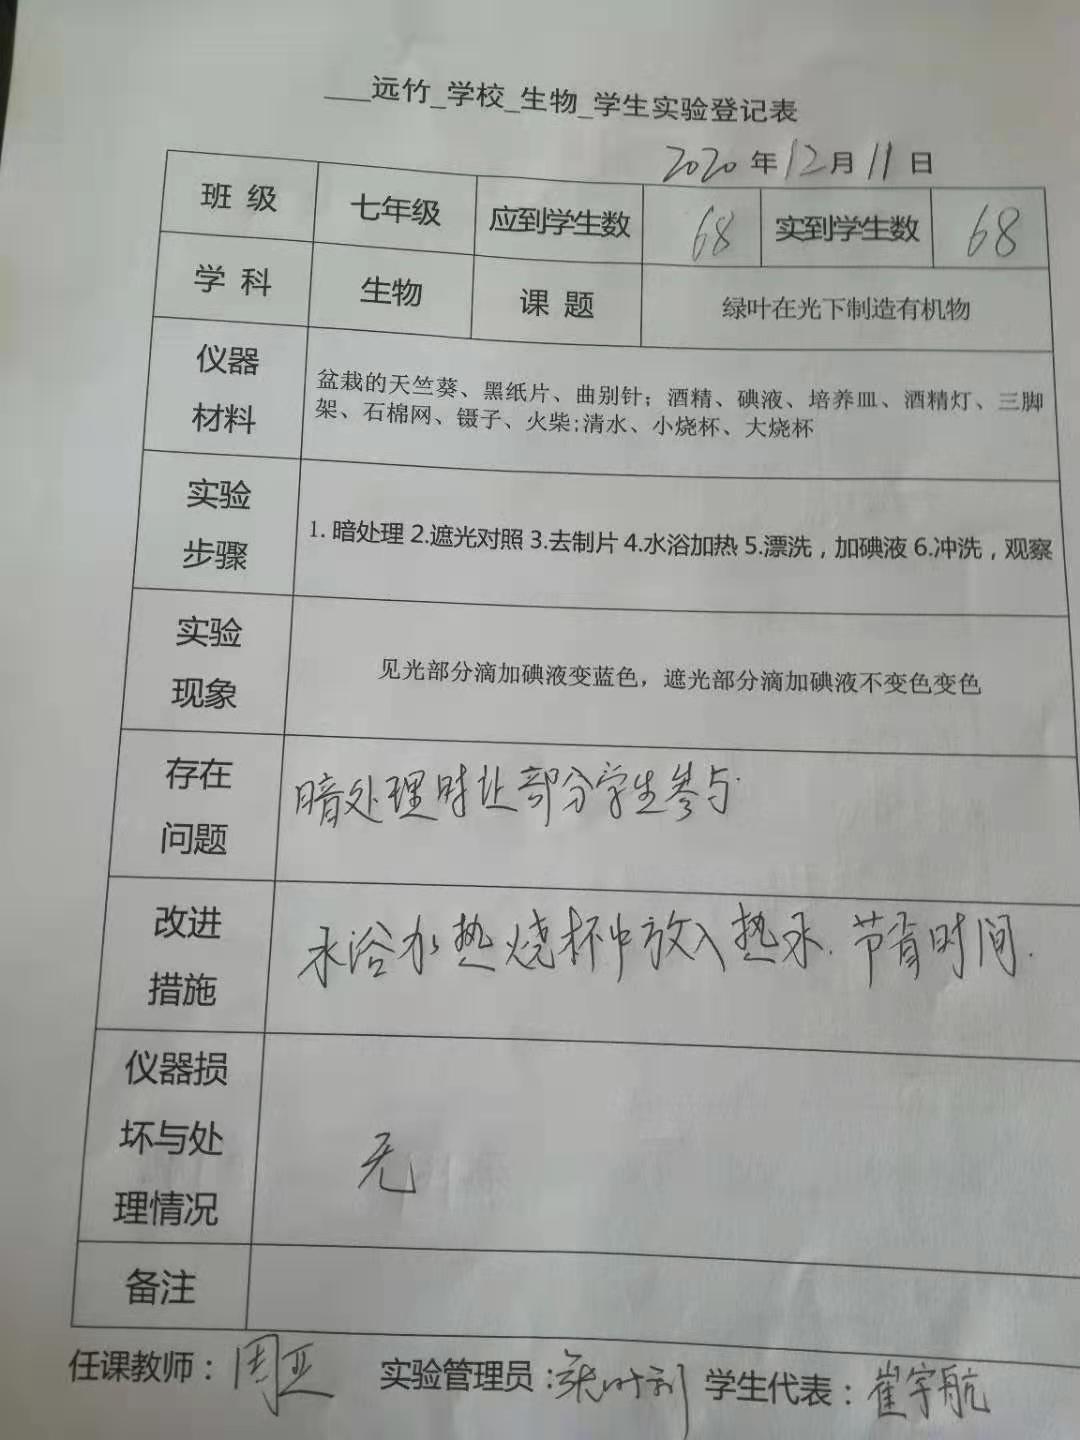 ___远竹_学校_生物_学生实验登记表
2020 年 12 月 11 日
班 级 七年级 应到学生数 68 实到学生数 68
学 科 生物 课 题 绿叶在光下制造有机物
仪器
材料
盆栽的天竺葵、黑纸片、曲别针；酒精、碘液、培养皿、酒精灯、三脚
架、石棉网、镊子、火柴;清水、小烧杯、大烧杯
实验
步骤
1. 暗处理 2.遮光对照 3.去制片 4.水浴加热 5.漂洗，加碘液 6.冲洗，观察
实验
现象
见光部分滴加碘液变蓝色，遮光部分滴加碘液不变色变色
存在
问题
暗处理时让部分学生参与.
改进
措施
水浴水热烧杯中放入热水.节省时间.
仪器损
坏与处
理情况
无
备注
任课教师：周亚 实验管理员： 学生代表：崔宇航